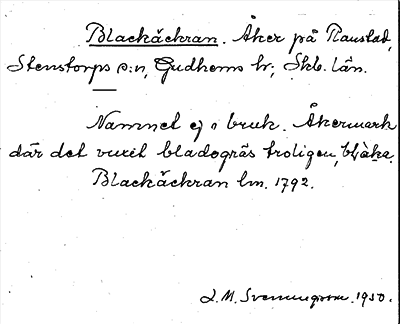 Blackåckran. Åker på Raustad,
Stenstorps s:n, Gudhems hr; Skb. län.
Namnet ej i bruk. Åkermark
där det vuxit bladogräs troligen,
Blackåckran lm. 1792.
J. M. Svennungsson. 1930.